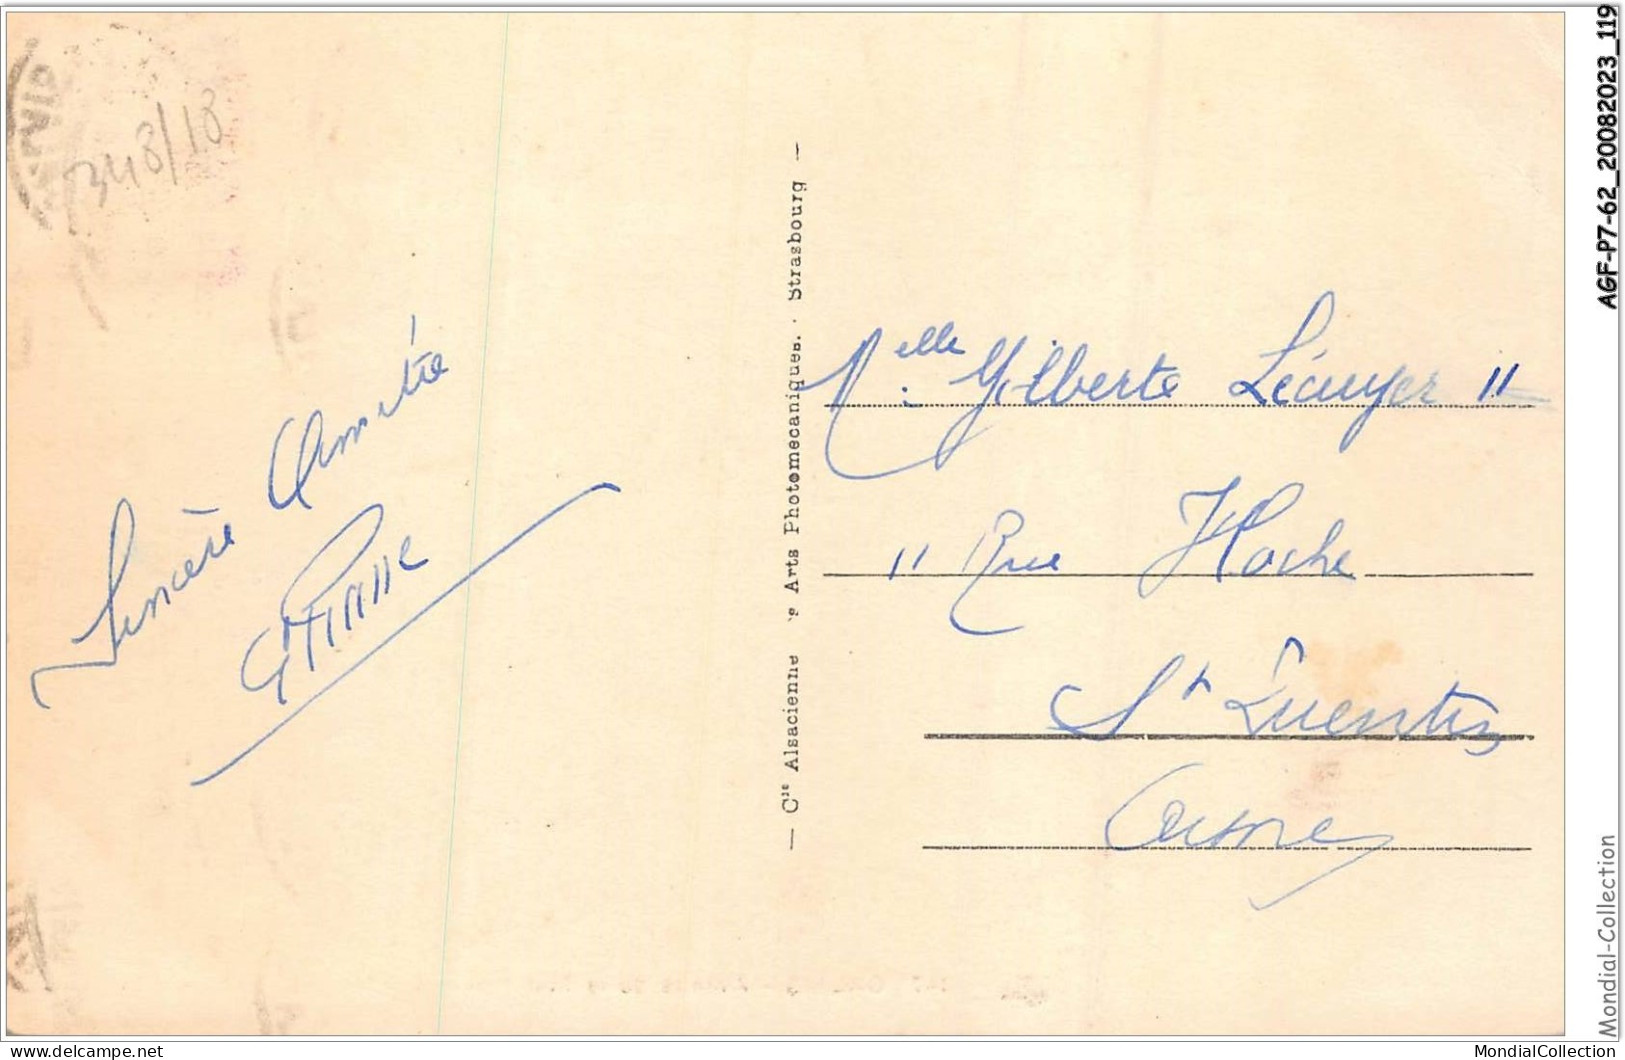 348/18
Sincère Amitié
— Cie Alsacienne des Arts Photomécaniques. - Strasbourg —
Melle Gilberte Lécuyer "
11 Rue Hoche
St Quentin
Aisne
AGF-P7-62_20082023_119
Mondial-Collection
www.delcampe.net
MondialCollection